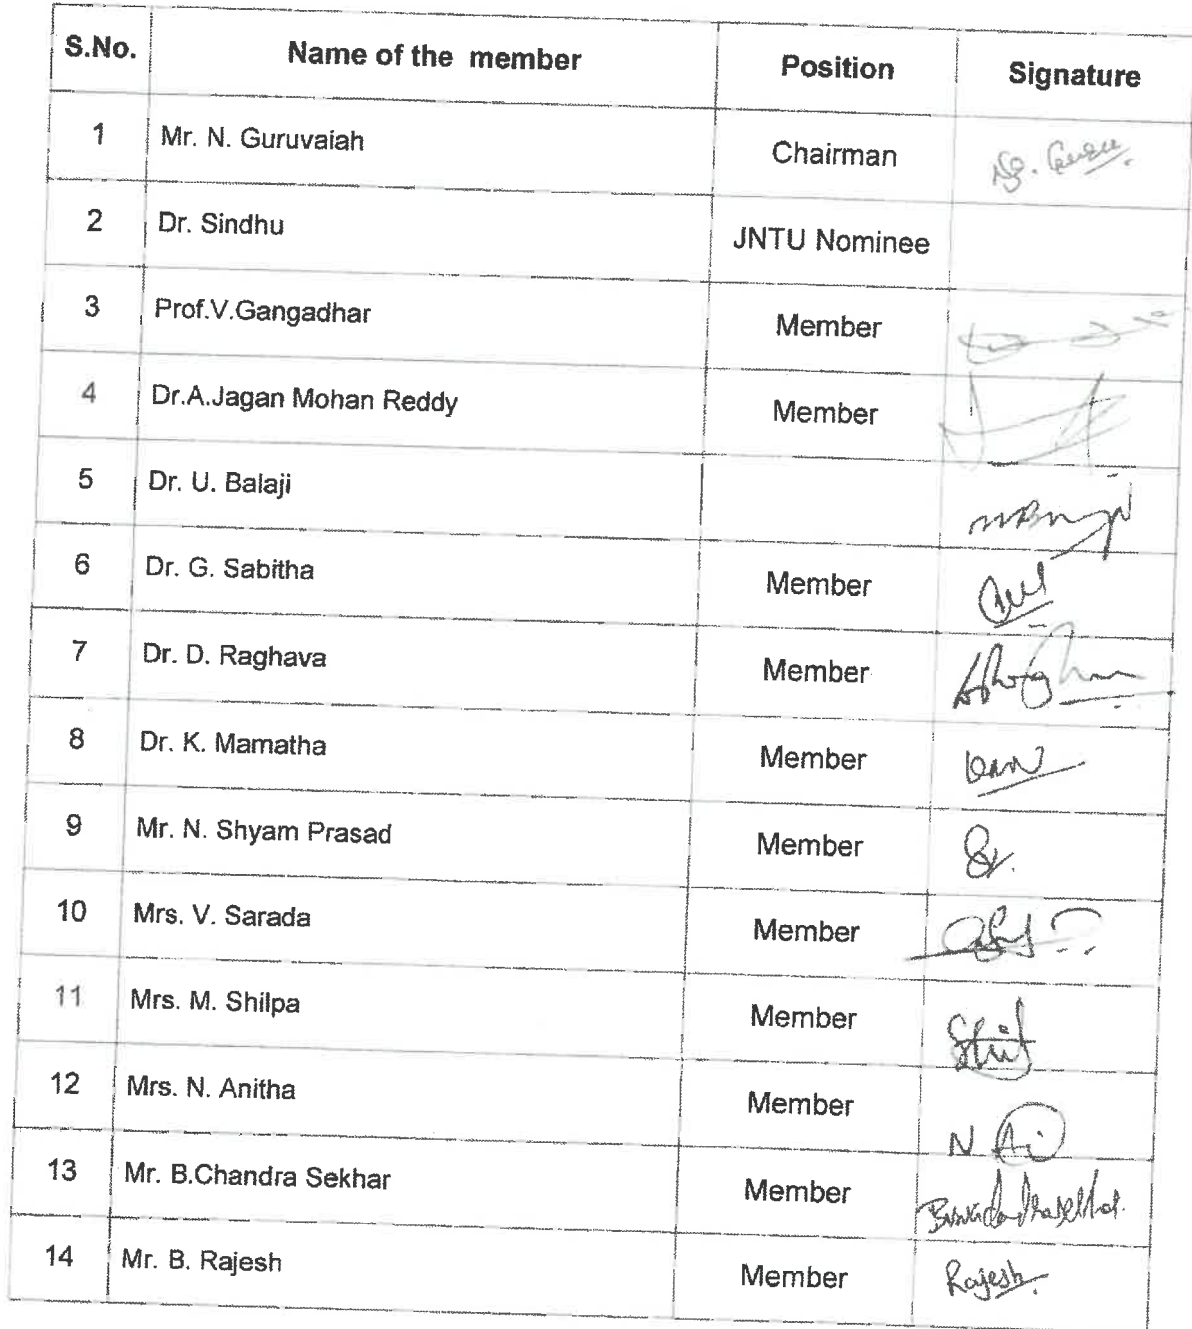 S.No. Name of the member Position Signature
1 Mr. N. Guruvaiah Chairman
2 Dr. Sindhu JNTU Nominee
3 Prof.V.Gangadhar Member
4 Dr.A.Jagan Mohan Reddy Member
5 Dr. U. Balaji
6 Dr. G. Sabitha Member
7 Dr. D. Raghava Member
8 Dr. K. Mamatha Member
9 Mr. N. Shyam Prasad Member
10 Mrs. V. Sarada Member
11 Mrs. M. Shilpa Member
12 Mrs. N. Anitha Member N
13 Mr. B.Chandra Sekhar Member
14 Mr. B. Rajesh Member Rajesh